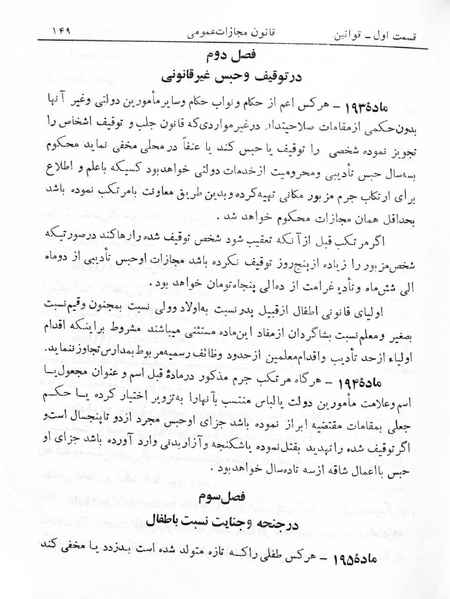 قسمت اول ـ قوانین قانون مجازات عمومی ۱۴۹
فصل دوم
در توقیف و حبس غیر قانونی
مادهٔ ۱۹۳ ـ هر کس اعم از حکام و نواب حکام و سایر مأمورین دولتی و غیر آنها
بدون حکمی از مقامات صلاحیتدار در غیر مواردی که قانون جلب و توقیف اشخاص را
تجویز نموده شخصی را توقیف یا حبس کند یا عنفاً در محلی مخفی نماید محکوم
به سه سال حبس تأدیبی و محرومیت از خدمات دولتی خواهد بود کسیکه با علم و اطلاع
برای ارتکاب جرم مزبور مکانی تهیه کرده و بدین طریق معاونت با مرتکب نموده باشد
بحداقل همان مجازات محکوم خواهد شد .
اگر مرتکب قبل از آنکه تعقیب شود شخص توقیف شده را رها کند در صورتیکه
شخص مزبور را زیاده از پنج روز توقیف نکرده باشد مجازات او حبس تأدیبی از دو ماه
الی شش ماه و تأدیه غرامت از ده الی پنجاه تومان خواهد بود .
اولیای قانونی اطفال از قبیل پدر نسبت به اولاد و ولی نسبت بمجنون و قیم نسبت
بصغیر و معلم نسبت بشاگردان از مفاد این ماده مستثنی میباشند مشروط بر اینکه اقدام
اولیاء از حد تأدیب و اقدام معلمین از حدود وظائف رسمیه مربوط بمدارس تجاوز ننماید.
مادهٔ ۱۹۴ ـ هر گاه مرتکب جرم مذکور در مادهٔ قبل اسم و عنوان مجعول یا
اسم و علامت مأمورین دولت یا لباس منتسب بآنها را به تزویر اختیار کرده یا حکم
جعلی بمقامات مقتضیه ابراز نموده باشد جزای او حبس مجرد از دو تا پنجسال است و
اگر توقیف شده را تهدید بقتل نموده یا شکنجه و آزار بدنی وارد آورده باشد جزای او
حبس با اعمال شاقه از سه تا ده سال خواهد بود .
فصل سوم
در جنحه و جنایت نسبت باطفال
مادهٔ ۱۹۵ ـ هر کس طفلی را که تازه متولد شده است بدزدد یا مخفی کند